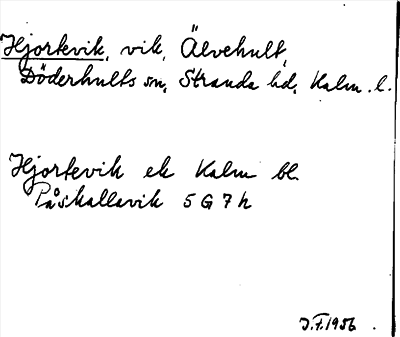 Hjortevik, vik, Älvehult,
Döderhults sn, Stranda hd, Kalm. l.
Hjortevik ek Kalm bl.
Påskallavik 5 G 7 h
J.F. 1956